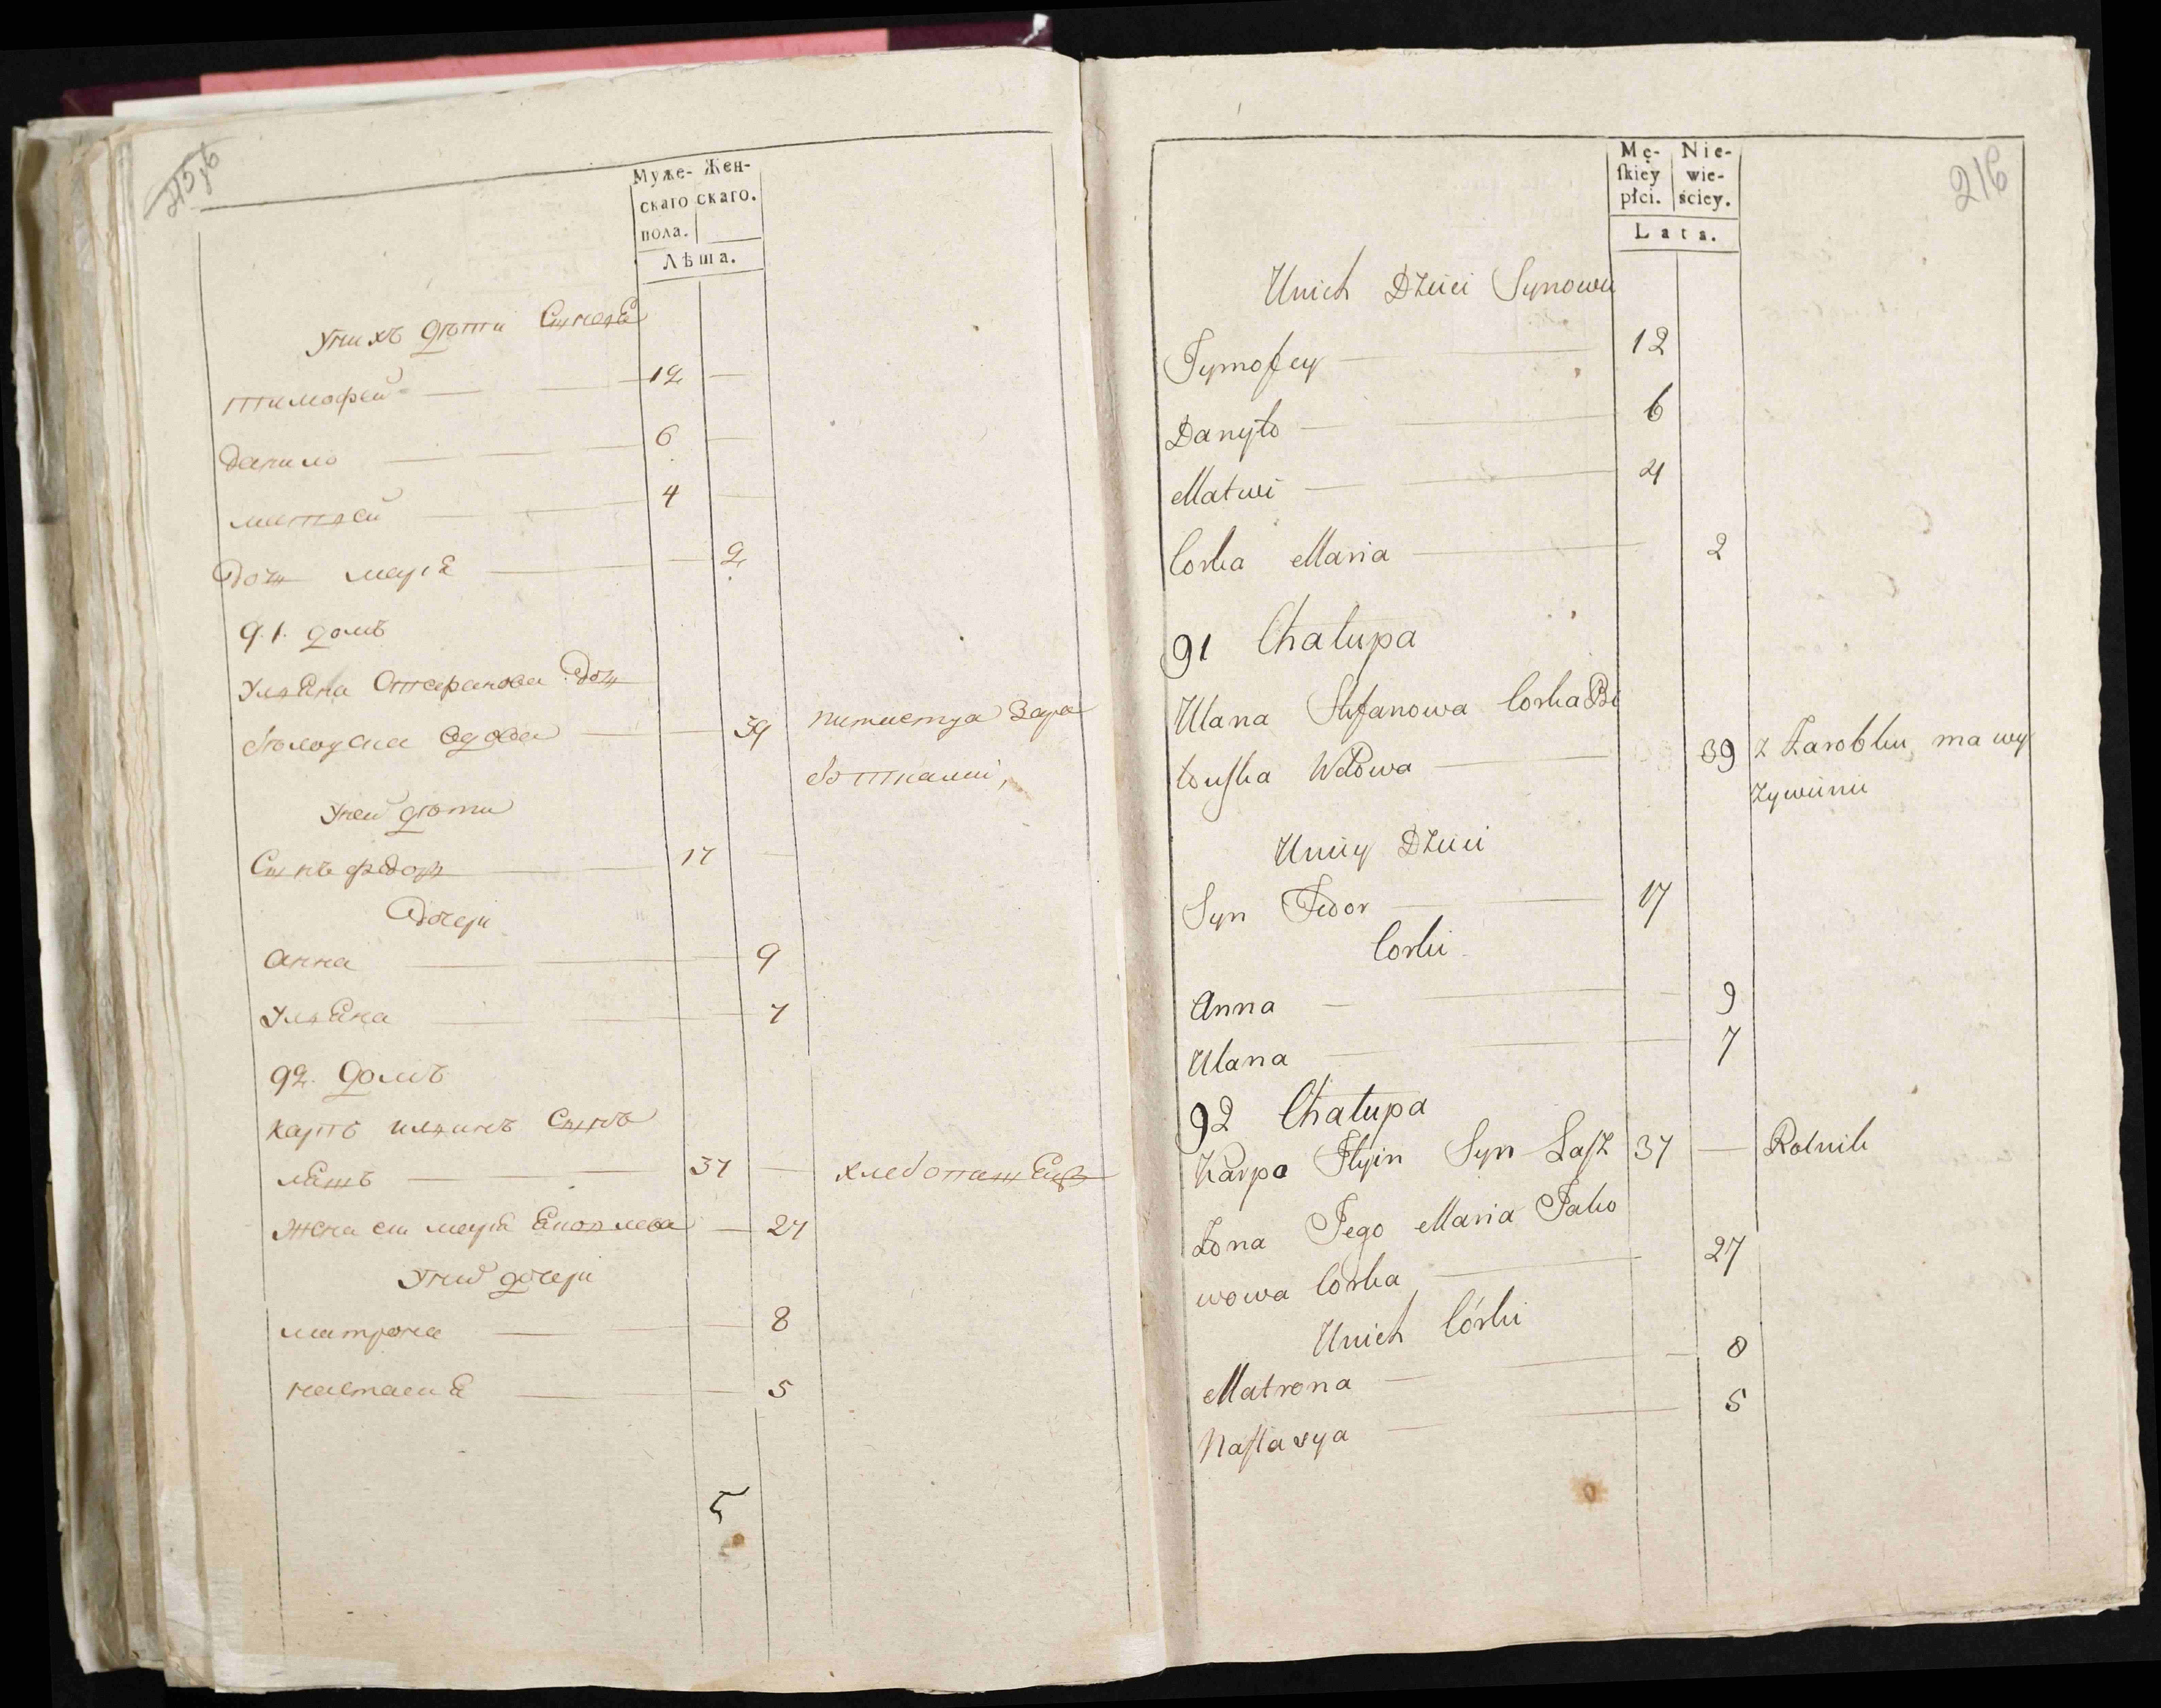 215об
Муже- Жен-
скаго скаго.
пола.
Лѣта.
Унихъ дѣти Сыновя
тимофей 12
данило 6
матвей 4
дочь марія 2
91. домъ
Уляна Стефанова дочь
вдова 39 питается зара
ботками,
Уней дѣти
Сынъ федор 17
дочери
анна 9
Уляна 7
92. домъ
карпъ илинъ Сынъ
ляшъ 37 хлебопашець
жена ея марія Яковлева 27
Уних дочери
матрона 8
настасия 5
216
Mę- Nie-
skiey wie-
płci. ściey.
Lata.
Unich Dzieci Synowie
Tymofey 12
Danyło 6
Matwi 4
Corka Maria 2
91 Chalupa
Ulana Stefanowa Corka Bi
łouska Wdowa 39 z Zarobku ma wy
zywienie
Unieiy Dzieci
Syn Fedor 17
Corki
Anna 9
Ulana 7
92 Chatupa
Karpo Ilyin Syn Lasz 37 Rolnik
Zona Jego Maria Jako
wowa Corka 27
Unich Córki
Matrona 8
Nastasya 5